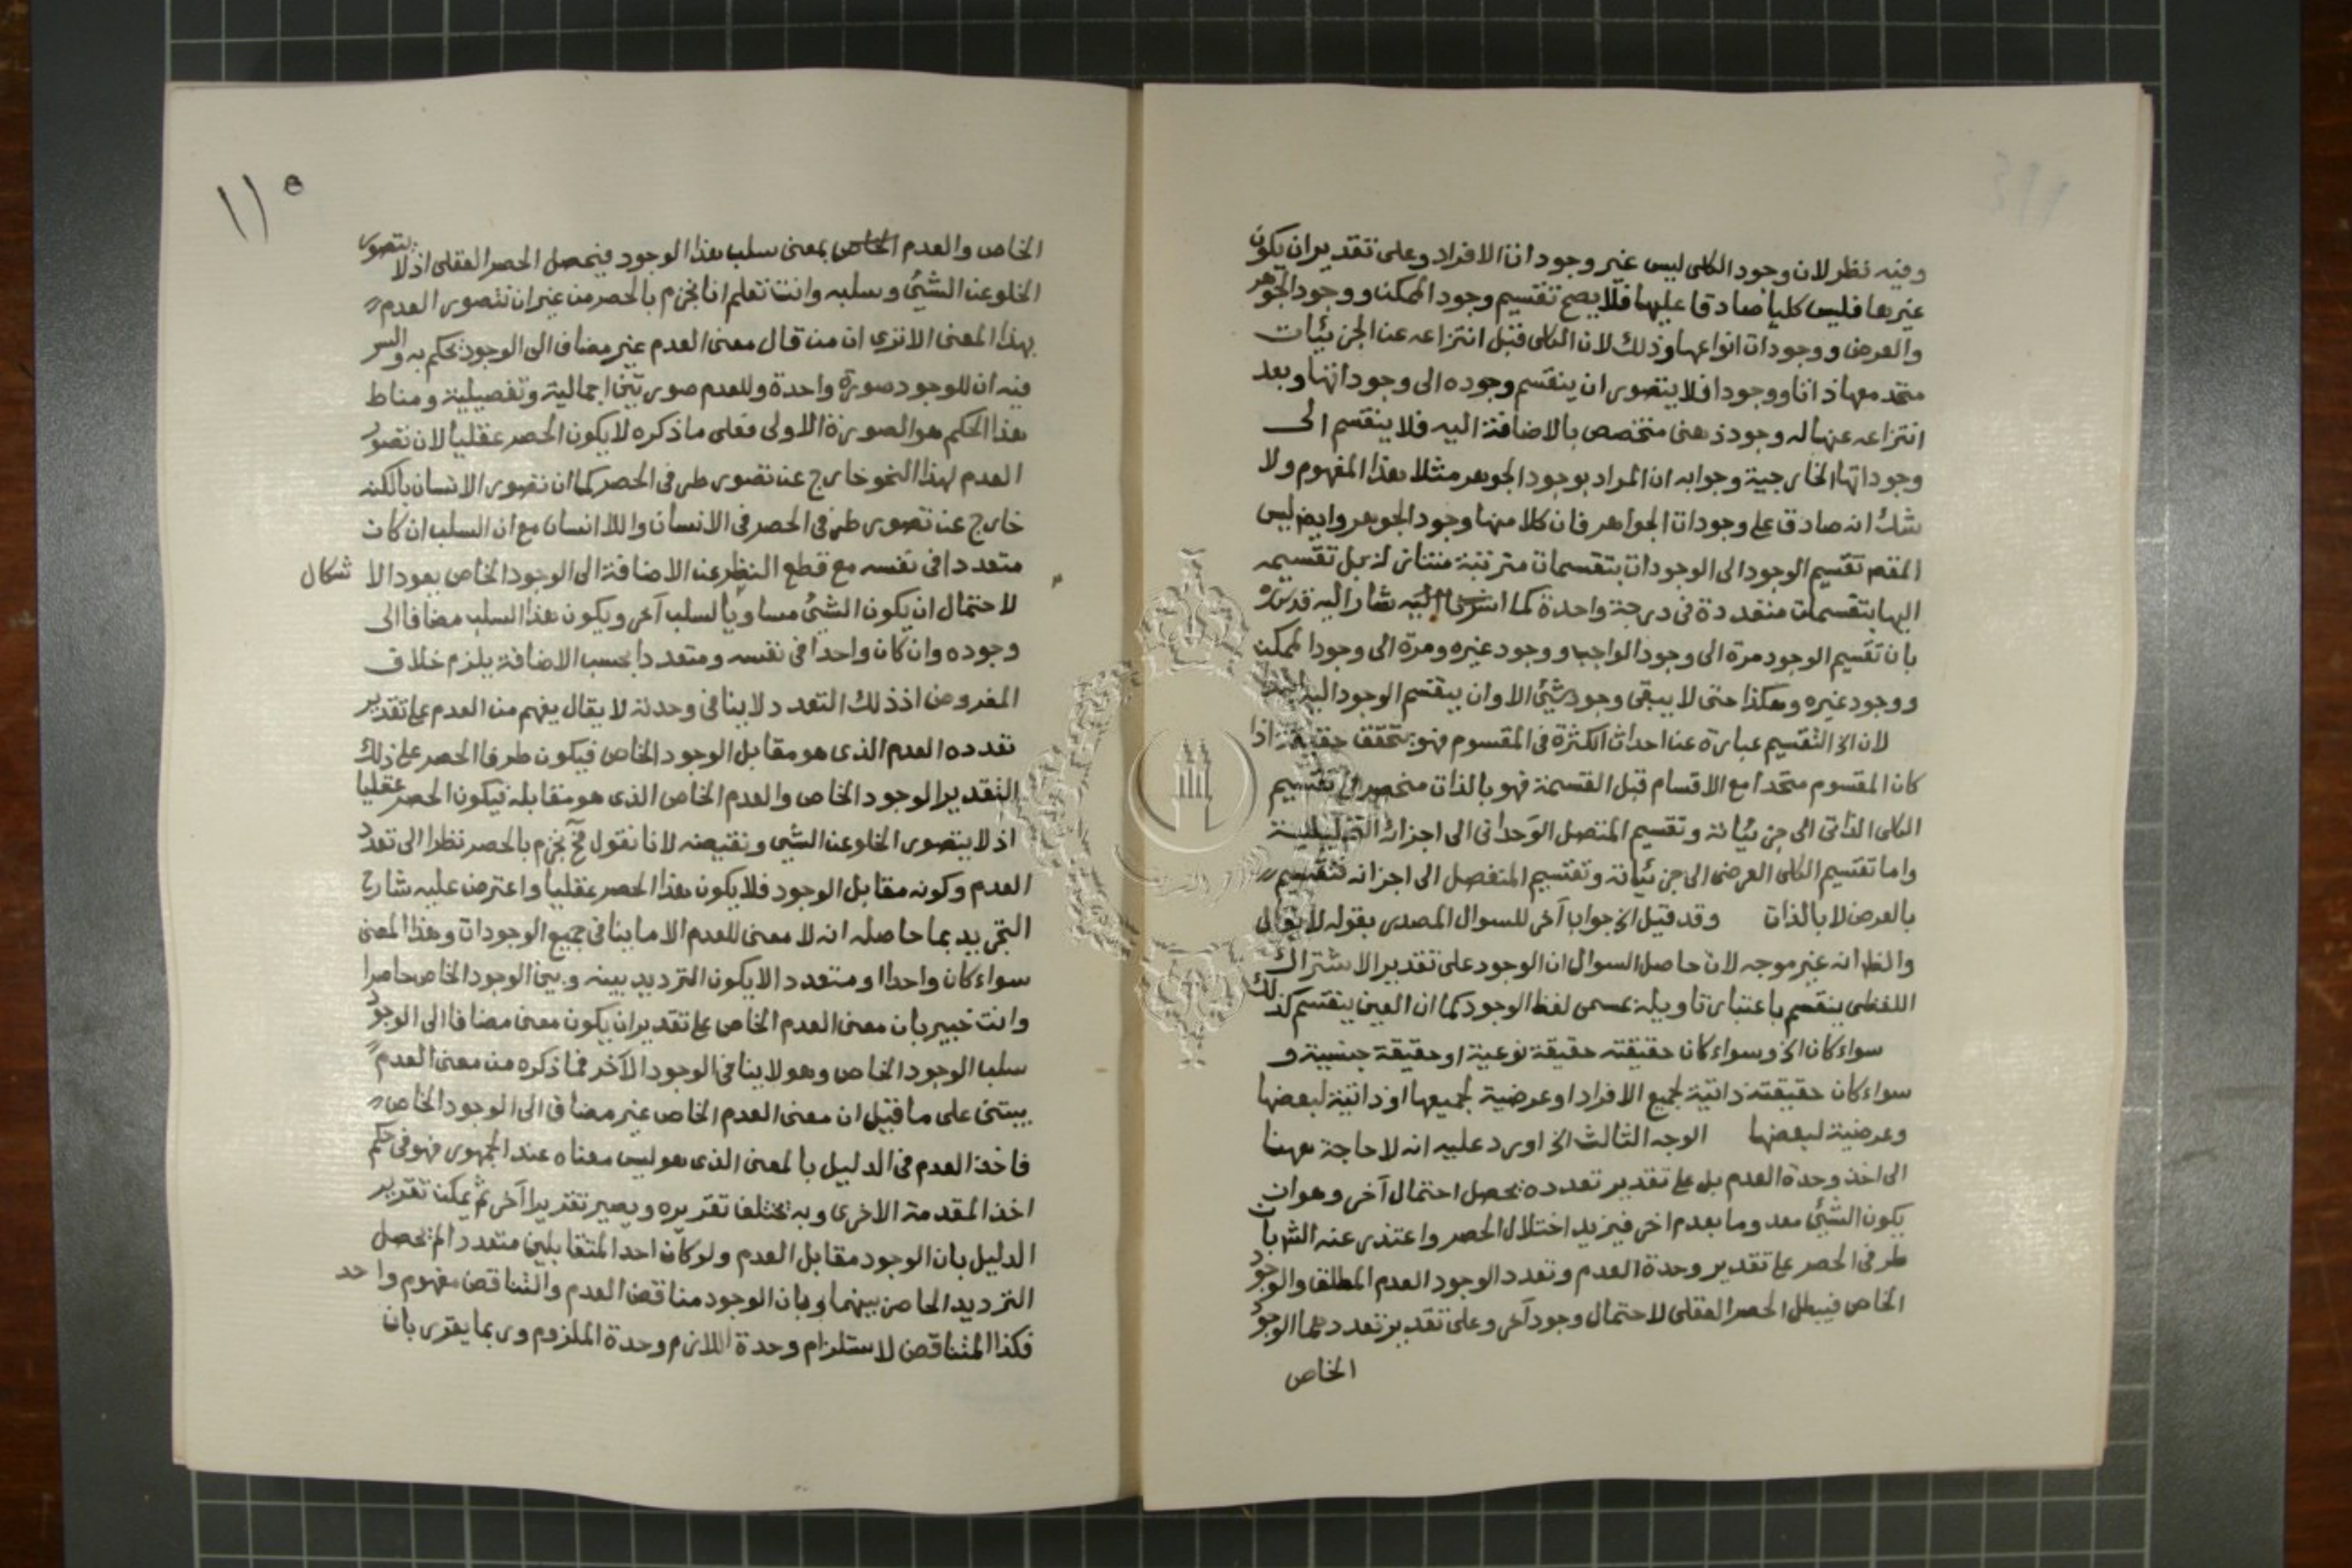 وفيه نظر لان وجود الكلى ليس غير وجودات الافراد وعلى تقدير ان يكون
غيرها فليس كليا صادقا عليها فلا يصح تقسيم وجود الممكن ووجود الجوهر
والعرض ووجودات انواعها وذلك لان الكلى قبل انتزاعه عن الجزئيات
متحد معها ذاتا ووجودا فلا يتصور ان ينقسم وجوده الى وجوداتها وبعد
انتزاعه عنها له وجود ذهنى متخصص بالاضافة اليه فلا ينقسم الى
وجوداتها الخارجية وجوابه ان المراد بوجود الجوهر مثلا هذا المفهوم ولا
شك انه صادق على وجودات الجواهر فان كلا منها وجود الجوهر وايض ليس
المقص تقسيم الوجود الى الوجودات بتقسيمات مترتبة متنازلة بل تقسيمه
اليها بتقسيمات متعددة فى درجة واحدة كما اشار اليه قدس سره
بان تقسيم الوجود مرة الى وجود الواجب ووجود غيره ومرة الى وجود الممكن
ووجود غيره وهكذا حتى لا يبقى وجود شئ الا وان ينقسم الوجود اليه
لان الخ التقسيم عبارة عن احداث الكثرة فى المقسوم فهو يتحقق حقيقة اذا
كان المقسوم متحدا مع الاقسام قبل القسمة فهو بالذات منحصر فى تقسيم
الكلى الذاتى الى جزئياته وتقسيم المتصل الوحدانى الى اجزائه التحليلية
واما تقسيم الكلى العرضى الى جزئياته وتقسيم المنفصل الى اجزائه فتقسيم
بالعرض لا بالذات وقد قيل الخ جواب آخر للسوال المصدر بقوله لا يقال
والظ انه غير موجه لان حاصل السوال ان الوجود على تقدير الاشتراك
اللفظى ينقسم باعتبار تاويله بمسمى لفظ الوجود كما ان العين ينقسم كذلك
سواء كان الخ وسواء كان حقيقته حقيقة نوعية او حقيقة جنسية و
سواء كان حقيقته ذاتية لجميع الافراد او عرضية لجميعها او ذاتية لبعضها
وعرضية لبعضها الوجه الثالث الخ اورد عليه انه لا حاجة ههنا
الى اخذ وحدة العدم بل على تقدير تعدده يحصل احتمال آخر وهو ان
يكون الشئ معدوما بعدم اخر فيزيد اختلال الحصر واعتذر عنه الش بان
طرفى الحصر على تقدير وحدة العدم وتعدد الوجود العدم المطلق والوجود
الخاص فيبطل الحصر العقلى لاحتمال وجود آخر وعلى تقدير تعددهما الوجود
الخاص
١١٥
الخاص والعدم الخاص بمعنى سلب هذا الوجود فيحصل الحصر العقلى اذ لا يتصور
الخلو عن الشئ وسلبه وانت تعلم انا نجزم بالحصر من غير ان نتصور العدم
بهذا المعنى الا ترى ان من قال معنى العدم غير مضاف الى الوجود يحكم به والسر
فيه ان للوجود صورة واحدة وللعدم صورتين اجمالية وتفصيلية ومناط
هذا الحكم هو الصورة الاولى فعلى ما ذكره لا يكون الحصر عقليا لان تصور
العدم لهذا النحو خارج عن تصور طرفى الحصر كما ان تصور الانسان بالكنه
خارج عن تصور طرفى الحصر فى الانسان واللاانسان مع ان السلب ان كان
متعددا فى نفسه مع قطع النظر عن الاضافة الى الوجود الخاص يعود الاشكال
لاحتمال ان يكون الشئ مساويا لسلب آخر ويكون هذا السلب مضافا الى
وجوده وان كان واحدا فى نفسه ومتعددا بحسب الاضافة يلزم خلاف
المفروض اذ ذلك التعدد لا ينافى وحدته لا يقال يفهم من العدم على تقدير
تعدده العدم الذى هو مقابل الوجود الخاص فيكون طرفا الحصر على ذلك
التقدير الوجود الخاص والعدم الخاص الذى هو مقابله فيكون الحصر عقليا
اذ لا يتصور الخلو عن الشئ ونقيضه لانا نقول فح نجزم بالحصر نظرا الى تعدد
العدم وكونه مقابل الوجود فلا يكون هذا الحصر عقليا واعترض عليه شارح
التجريد بما حاصله انه لا معنى للعدم الا ما ينافى جميع الوجودات وهذا المعنى
سواء كان واحدا او متعددا لا يكون الترديد بينه وبين الوجود الخاص حاصرا
وانت خبير بان معنى العدم الخاص على تقدير ان يكون معنى مضافا الى الوجود
سلب الوجود الخاص وهو لا ينافى الوجود الآخر فما ذكره من معنى العدم
يبتنى على ما قيل ان معنى العدم الخاص غير مضاف الى الوجود الخاص
فاخذ العدم فى الدليل بالمعنى الذى هو ليس معناه عند الجمهور فهو فى حكم
اخذ المقدمة الاخرى وبه يختلف تقريره ويصير تقريرا آخر ثم يمكن تقرير
الدليل بان الوجود مقابل العدم ولو كان احد المتقابلين متعددا لم يحصل
الترديد الحاصر بينهما وبان الوجود مناقض العدم والتناقض مفهوم واحد
فكذا المتناقض لاستلزام وحدة اللازم وحدة الملزوم وربما يقرر بان